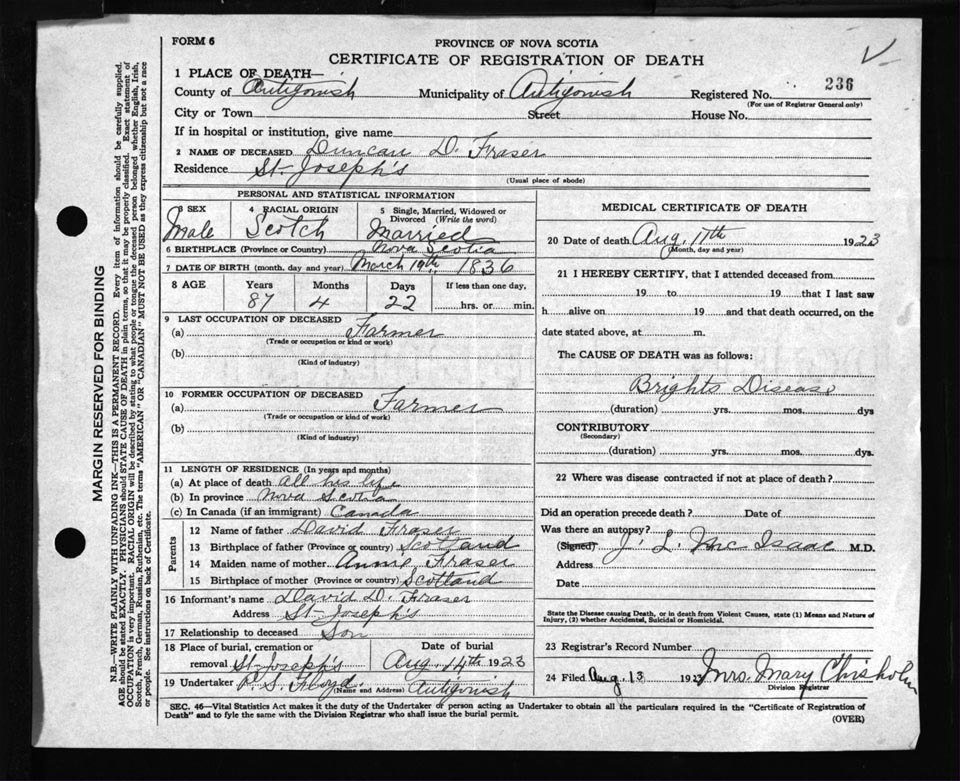 FORM 6
PROVINCE OF NOVA SCOTIA
CERTIFICATE OF REGISTRATION OF DEATH
1 PLACE OF DEATH—
County of Antigonish Municipality of Antigonish Registered No. 236
(For use of Registrar General only)
City or Town Street House No.
If in hospital or institution, give name
2 NAME OF DECEASED Duncan D. Fraser
Residence St. Joseph's
(Usual place of abode)
PERSONAL AND STATISTICAL INFORMATION
3 SEX 4 RACIAL ORIGIN 5 Single, Married, Widowed or
Divorced (Write the word)
Male Scotch Married
6 BIRTHPLACE (Province or Country) Nova Scotia
7 DATE OF BIRTH (month, day and year) March 19th, 1836
8 AGE Years Months Days If less than one day,
87 4 22 hrs. or min.
9 LAST OCCUPATION OF DECEASED
(a) Farmer
(Trade or occupation or kind or work)
(b)
(Kind of industry)
10 FORMER OCCUPATION OF DECEASED
(a) Farmer
(Trade or occupation or kind of work)
(b)
(Kind of industry)
11 LENGTH OF RESIDENCE (In years and months)
(a) At place of death all his life
(b) In province Nova Scotia
(c) In Canada (if an immigrant) Canada
Parents
12 Name of father David Fraser
13 Birthplace of father (Province or country) Scotland
14 Maiden name of mother Annie Fraser
15 Birthplace of mother (Province or country) Scotland
16 Informant's name David D. Fraser
Address St. Joseph's
17 Relationship to deceased Son
18 Place of burial, cremation or Date of burial
removal St. Joseph's Aug. 14th 1923
19 Undertaker Floyd. Antigonish
(Name and Address)
MEDICAL CERTIFICATE OF DEATH
20 Date of death Aug. 11th 1923
(Month, day and year)
21 I HEREBY CERTIFY, that I attended deceased from
19 to 19 that I last saw
h alive on 19 and that death occurred, on the
date stated above, at m.
The CAUSE OF DEATH was as follows:
Brights Disease
(duration) yrs. mos. dys
CONTRIBUTORY
(Secondary)
(duration) yrs. mos. dys.
22 Where was disease contracted if not at place of death?
Did an operation precede death? Date of
Was there an autopsy?
(Signed) J. L. McIsaac M.D.
Address
Date
State the Disease causing Death, or in death from Violent Causes, state (1) Means and Nature of
Injury, (2) whether Accidental, Suicidal or Homicidal.
23 Registrar's Record Number
24 Filed Aug. 13 1923 Mrs. Mary Chisholm
Division Registrar
SEC. 46—Vital Statistics Act makes it the duty of the Undertaker or person acting as Undertaker to obtain all the particulars required in the "Certificate of Registration of
Death" and to fyle the same with the Division Registrar who shall issue the burial permit.
(OVER)
MARGIN RESERVED FOR BINDING
N.B.—WRITE PLAINLY WITH UNFADING INK—THIS IS A PERMANENT RECORD. Every item of information should be carefully supplied.
AGE should be stated EXACTLY. PHYSICIANS should STATE CAUSE OF DEATH in plain terms, so that it may be properly classified. Exact statement of
OCCUPATION is very important. RACIAL ORIGIN will be described by stating to what people or tongue the deceased person belonged whether English, Irish,
Scotch, French, German, Russian, Ruthenian, etc. The terms "AMERICAN" OR "CANADIAN" MUST NOT BE USED as they express citizenship but not a race
or people. See instructions on back of Certificate.